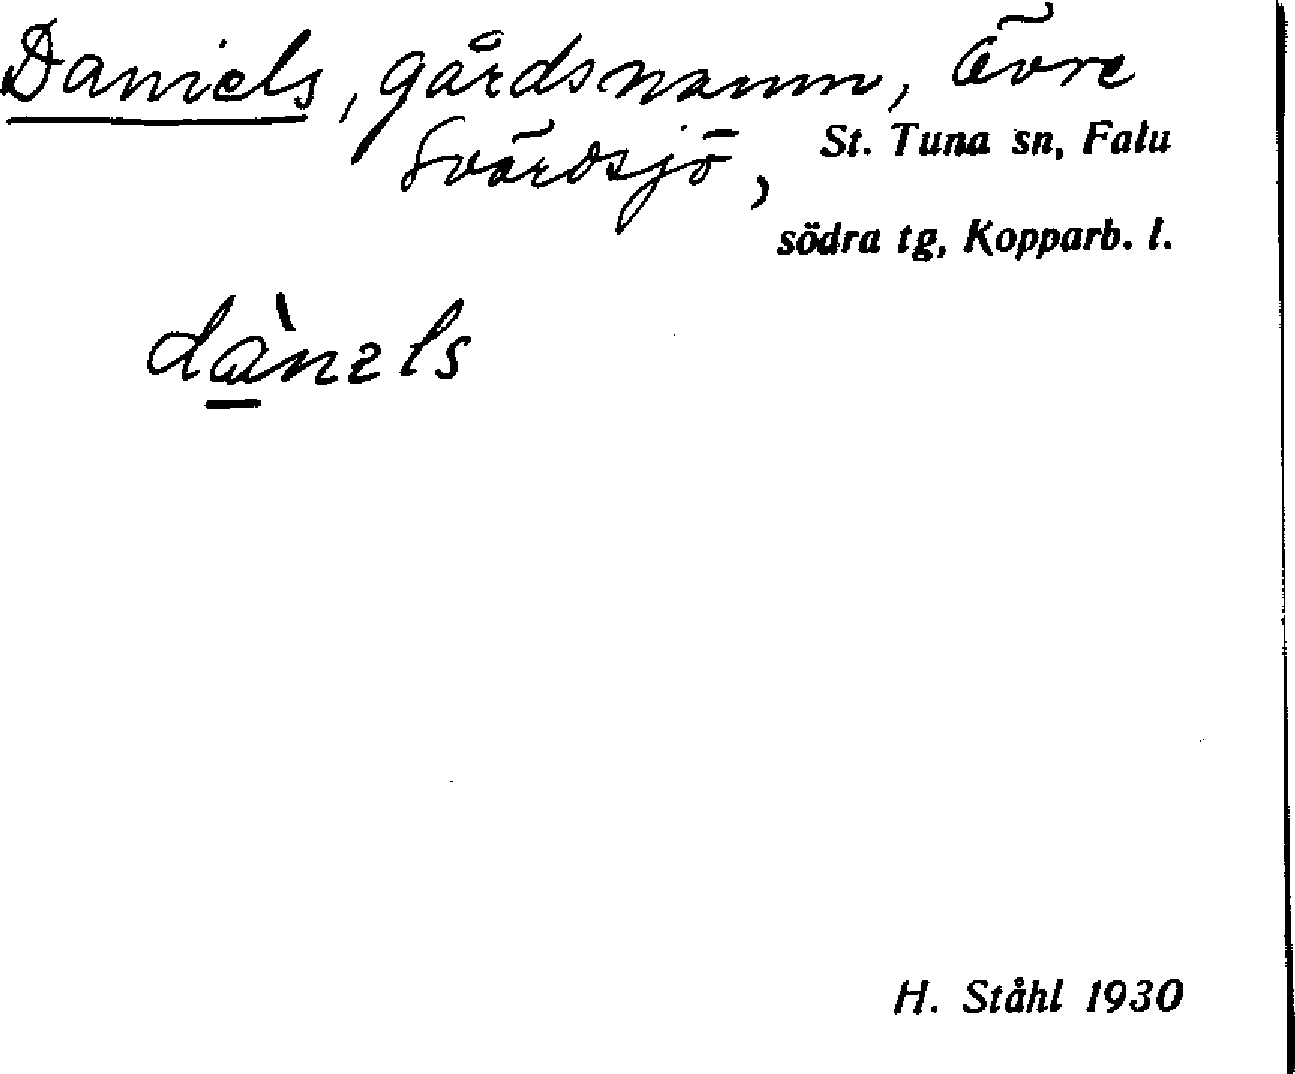 Daniels, gårdsnamn, Övre
Svärdsjö, St. Tuna sn, Falu
södra tg, Kopparb. l.
dànɛls
H. Ståhl 1930